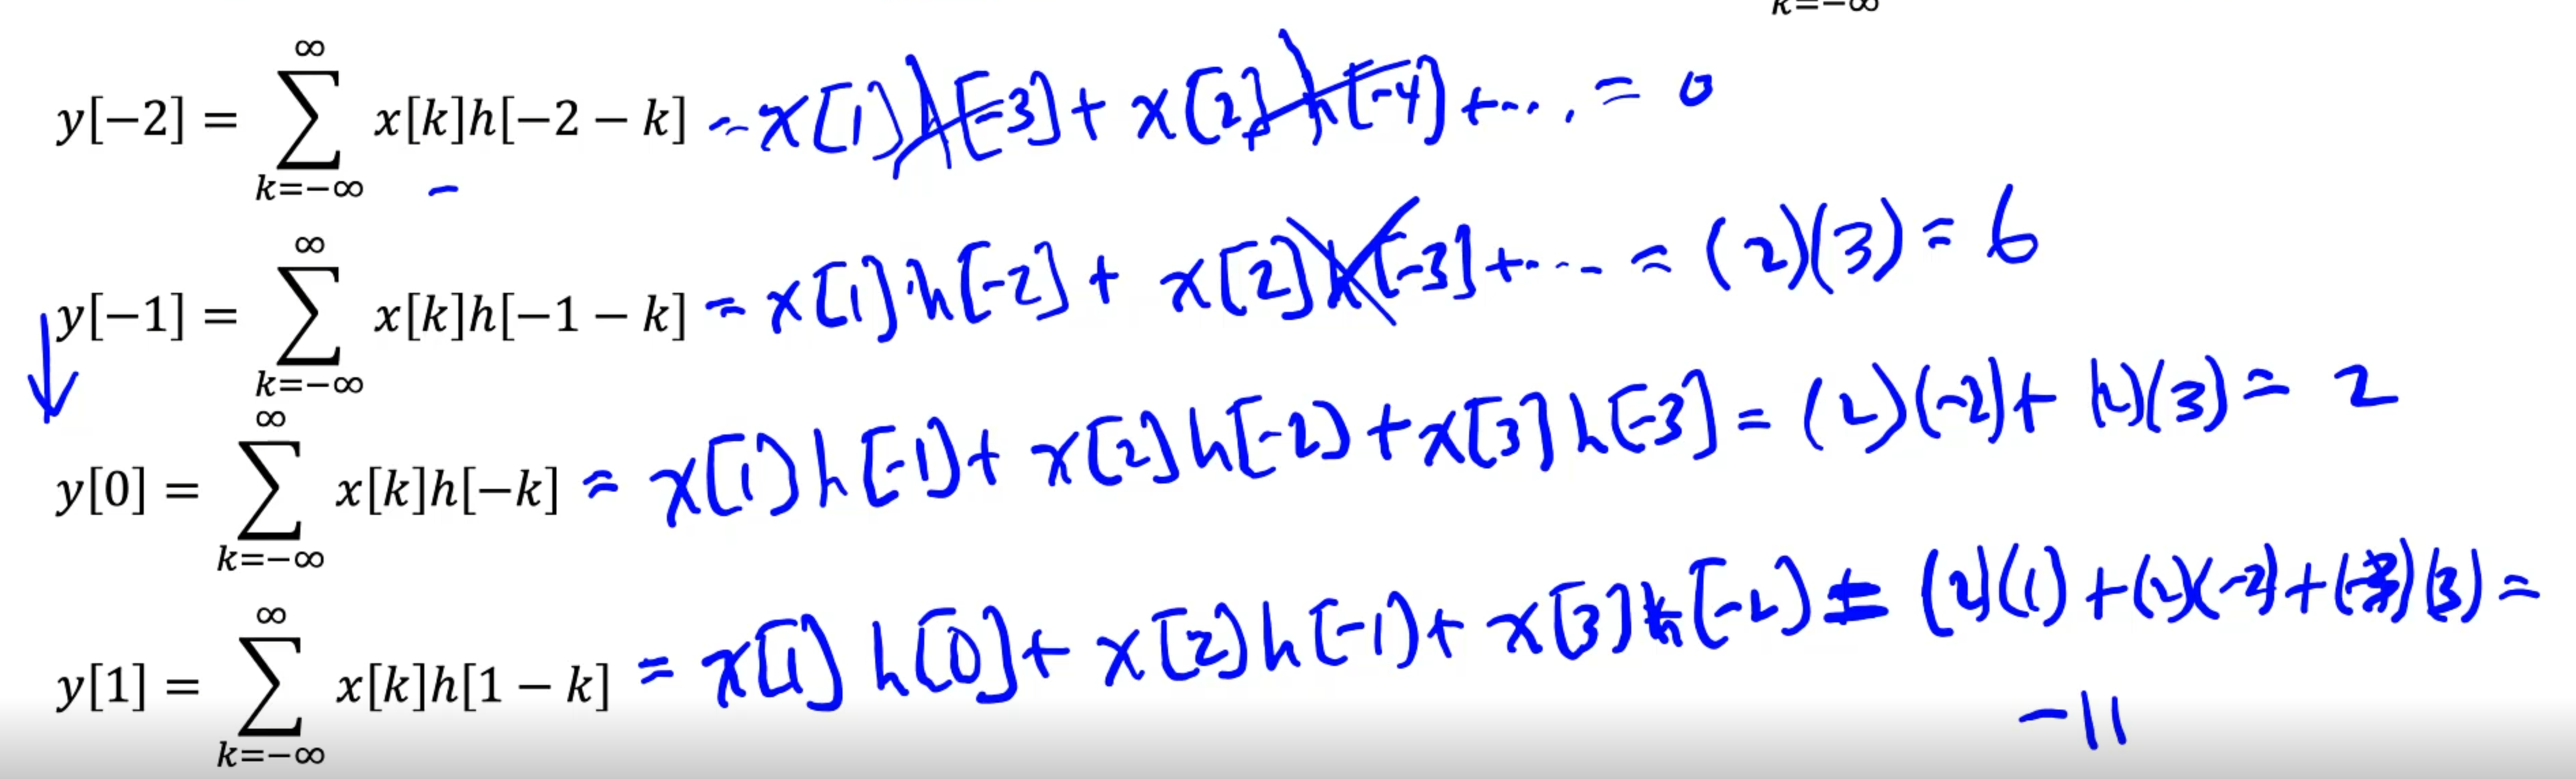 k=−∞
y[−2] = ∑_{k=−∞}^{∞} x[k]h[−2 − k] = x[1]h[-3] + x[2]h[-4] + ... = 0
y[−1] = ∑_{k=−∞}^{∞} x[k]h[−1 − k] = x[1]h[-2] + x[2]h[-3] + ... = (2)(3) = 6
y[0] = ∑_{k=−∞}^{∞} x[k]h[−k] = x[1]h[-1] + x[2]h[-2] + x[3]h[-3] = (2)(-2) + (2)(3) = 2
y[1] = ∑_{k=−∞}^{∞} x[k]h[1 − k] = x[1]h[0] + x[2]h[-1] + x[3]h[-2] = (2)(1) + (2)(-2) + ( )(3) =
-11